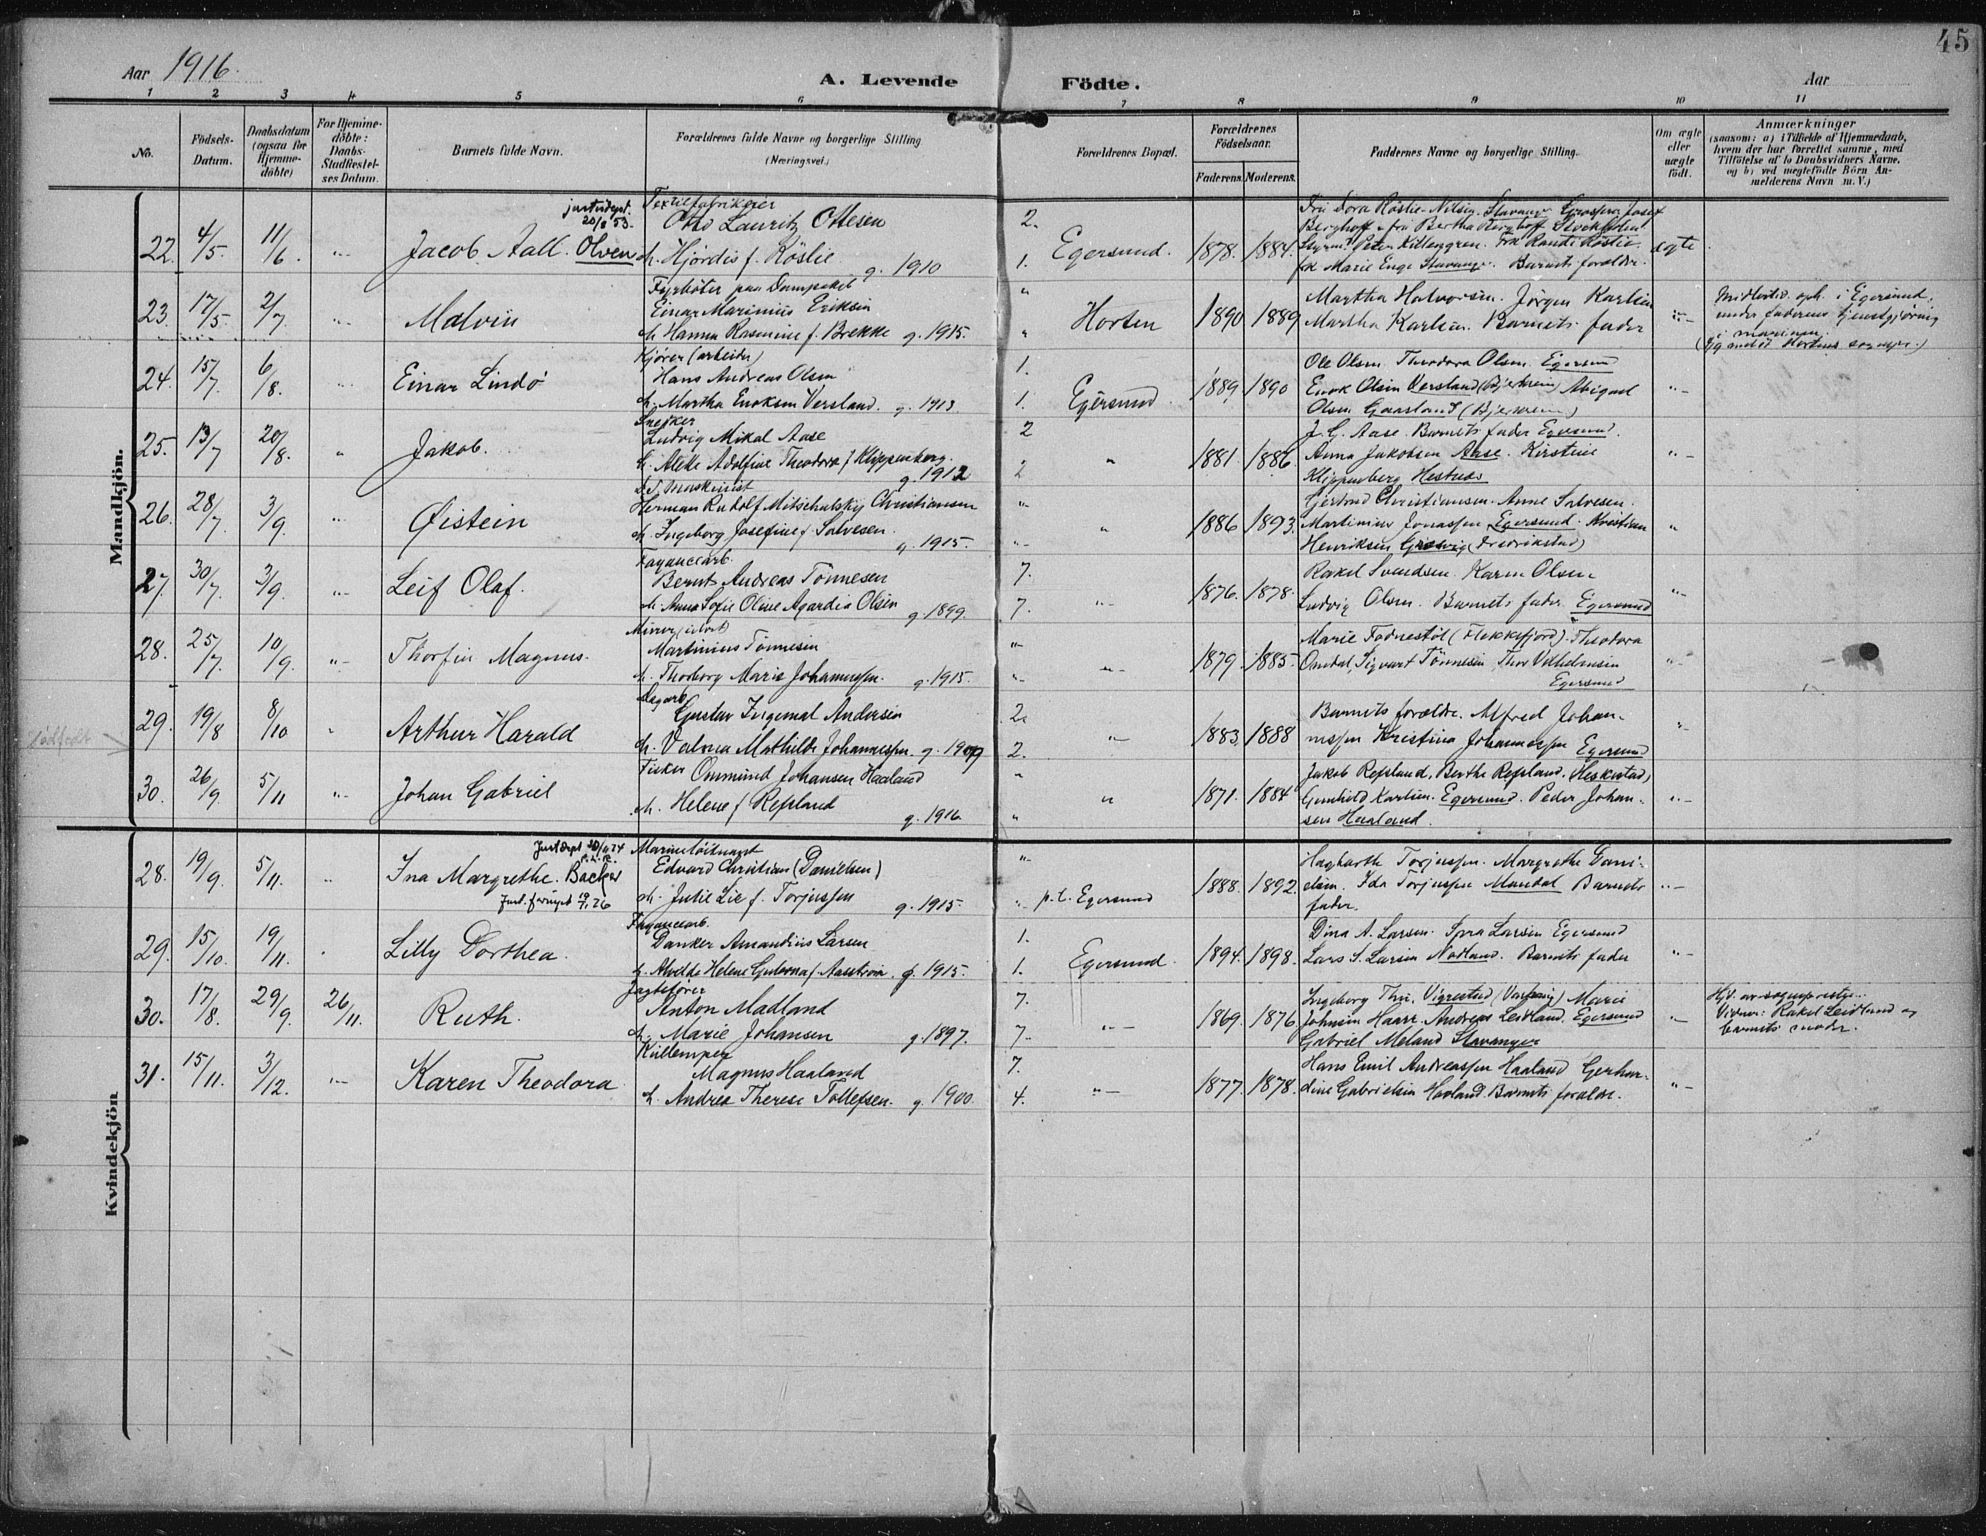 45
Aar 1916.
A. Levende Födte.
Aar
1 2 3 4 5 6 7 8 9 10 11
No.
Födsels-
Datum.
Daabsdatum
(ogsaa for
Hjemme-
döbte)
For Hjemme-
döbte:
Daabs-
Stadfæstel-
ses Datum.
Barnets fulde Navn.
Forældrenes fulde Navne og borgerlige Stilling
(Næringsvei.)
Forældrenes Bopæl.
Forældrenes
Födselsaar.
Faderens. Moderens.
Faddernes Navne og borgerlige Stilling.
Om ægte
eller
uægte
födt.
Anmærkninger
(saasom: a) i Tilfælde af Hjemmedaab,
hvem der har forrettet samme, med
Tilföielse af to Daabsvidners Navne.
og b) ved uegtefödte Börn An-
melderens Navn m. V.)
Mandkjön.
22. 4/5 11/6 "- Jacob Aall. Olven
justisdept. 20/8 53.
Textilfabrikeier
Otto Lauritz Ottesen
h. Hjördis f. Röslie g. 1910
2.
1. Egersund. 1878. 1884.
Berghoff fra Bertha Berghoff Stockholm
fr. Marie Enge Stavanger. Barnets forældre.
ægte
23. 17/5 2/7 "- Malvin
Fyrböter paa Dampskib
Einar Marinius Eriksen
h. Hanna Rasmine f. Brekke g. 1915.
"
" Horten 1890 1889
Martha Halvorsen. Jörgen Karlsen
Martha Karlsen. Barnets fader
"-
Midlertid. oph. i Egersund.
under faderens tjenstgjöring
i marinen.
24. 15/7 6/8. "- Einar Lindö
Kjörer (arbeider)
Hans Andreas Olsen
h. Martha Enoksen Versland. g. 1913.
1.
1. Egersund. 1889. 1890
Ole Olsen. Theodora Olsen. Egersund
Enok Olsen Versland (Bjerkrem) Abigael
Olsen Gaasland (Bjerkrem)
"-
25. 13/7 20/8. " Jakob.
Snekker
Ludvig Mikal Aase
h. Alette Adolfine Theodora f. Klippenberg.
g. 1912
2
2 " 1881 1886
J. G. Aase. Barnets fader Egersund.
Anna Jakobsen Aase. Kirstine
Klippenberg Hestnes
"-
26. 28/7 3/9. "- Øistein
D.S. Maskinist
Herman Rudolf Mitschulsky Christiansen
h. Ingeborg Josefine f. Salvesen. g. 1915.
"
"- " 1886 1893.
Gjertrud Christiansen. Anne Salvesen.
Martinius Jonassen Egersund. Kristian
Henriksen (Fredrikstad)
"
27. 30/7 3/9. "- Leif Olaf.
Fayancearb.
Bernt Andreas Tönnesen
h. Anna Sofie Olive Agardia Olsen g. 1899.
7.
7. "- 1876. 1878.
Rakel Svendsen. Karen Olsen
Ludvig Olsen. Barnets fader. Egersund
"-
28. 25/7. 10/9. "- Thorfin Magnus.
Martinius Tönnesen
h. Thorborg Marie Johannessen. g. 1915.
"-
"- "- 1879. 1885.
Marie Fodnestöl (Flekkefjord). Theodora
Omdal, Sigvart Tönnesen Thor Vilhelmsen
Egersund
"-
29. 19/8 8/10 " Arthur Harald
Gustav Ingemal Andersen
h. Valma Mathilde Johannessen. g. 1907
2.
2. "- 1883. 1888
Barnets forældre. Alfred Johan-
nessen Kristina Johannessen Egersund
"
30. 26/9. 5/11 "- Johan Gabriel
Fisker Ommund Johansen Haaland
h. Helene f. Repland g. 1916.
"
" " 1871. 1884
Jakob Repland, Berthe Repland. (Heskestad)
Gunhild Karlsen. Egersund. Peder Johan-
sen Haaland.
"-
Kvindekjön
28. 19/9. 5/11. "- Ina Margrethe. Backer
Marineløitnant
Edvard Christian (Danielsen)
h. Julie Lie f. Torjussen g. 1915.
"
" p.t. Egersund 1888. 1892.
Hagbarth Torjussen. Margrethe Dani-
elsen. Ida Torjussen Mandal Barnets
fader.
"-
29. 15/10. 19/11. Lilly Dorthea.
Fayancearb.
Danker Amandius Larsen
g. 1915.
1.
1. Egersund. 1894. 1898.
Dina A. Larsen. Egersund
Lars S. Larsen Nodland. Barnets fader
"-
30. 17/8. 29/9. 26/11. Ruth.
Anton Madland
h. Marie Johansen g. 1897.
7.
7. "- 1869. 1876
Ingeborg Thu. Vigrestad (Varhaug) Marie
Johnsen Haarr. Andreas Leidland. Egersund
Gabriel Meland Stavanger
"-
Hjd. av sogneprest
Vidner: Rakel Leidland og
barnets moder.
31. 15/11. 3/12. "- Karen Theodora
Kullemper
Magnus Haaland
h. Andrea Therese Tollefsen. g. 1900.
7.
4. "- 1877. 1878.
Hans Emil Andreassen Haaland Gerhar-
dine Gabrielsen Havland. Barnets forældre.
"-